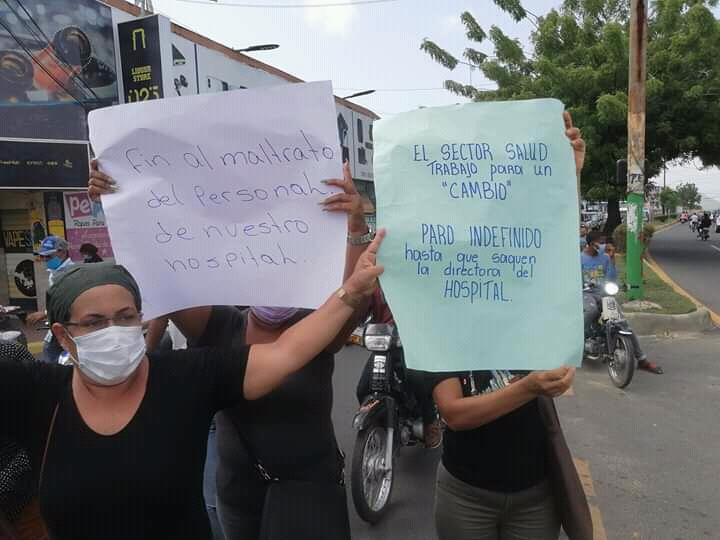 Fin al maltrato
del Personal.
de nuestro
hospital.
EL SECTOR SALUD
TRABAJO PARA UN
"CAMBIO"
PARO INDEFINIDO
hasta que saquen
la directora del
HOSPITAL.
LIQUOR
STORE
VAPES